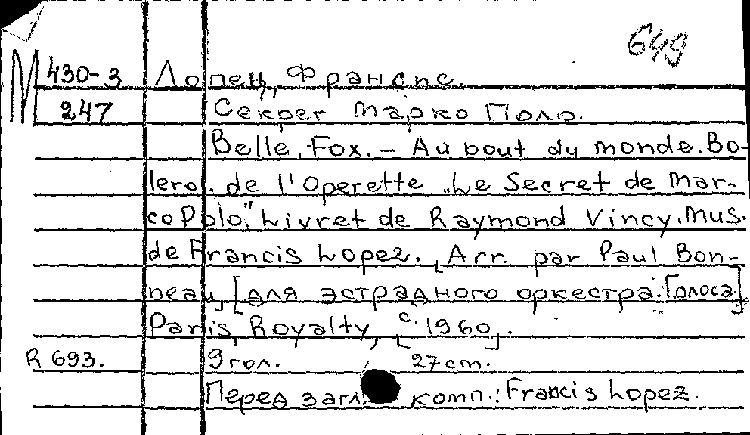 649
М 430-3 Лопец, Франсис.
247 Секрет Марко Поло.
Belle. Fox. – Au bout du monde. Bo-
lero. de l'Operette „Le Secret de Mar-
co Polo". Livret de Raymond Vincy. Mus.
de Francis Lopez. [Arr. par Paul Bon-
neau] [для эстрадного оркестра. Голоса]
Paris, Royalty, [c. 1960].
R 693. 9 гол. 27 cm.
Перед загл. комп.: Francis Lopez.